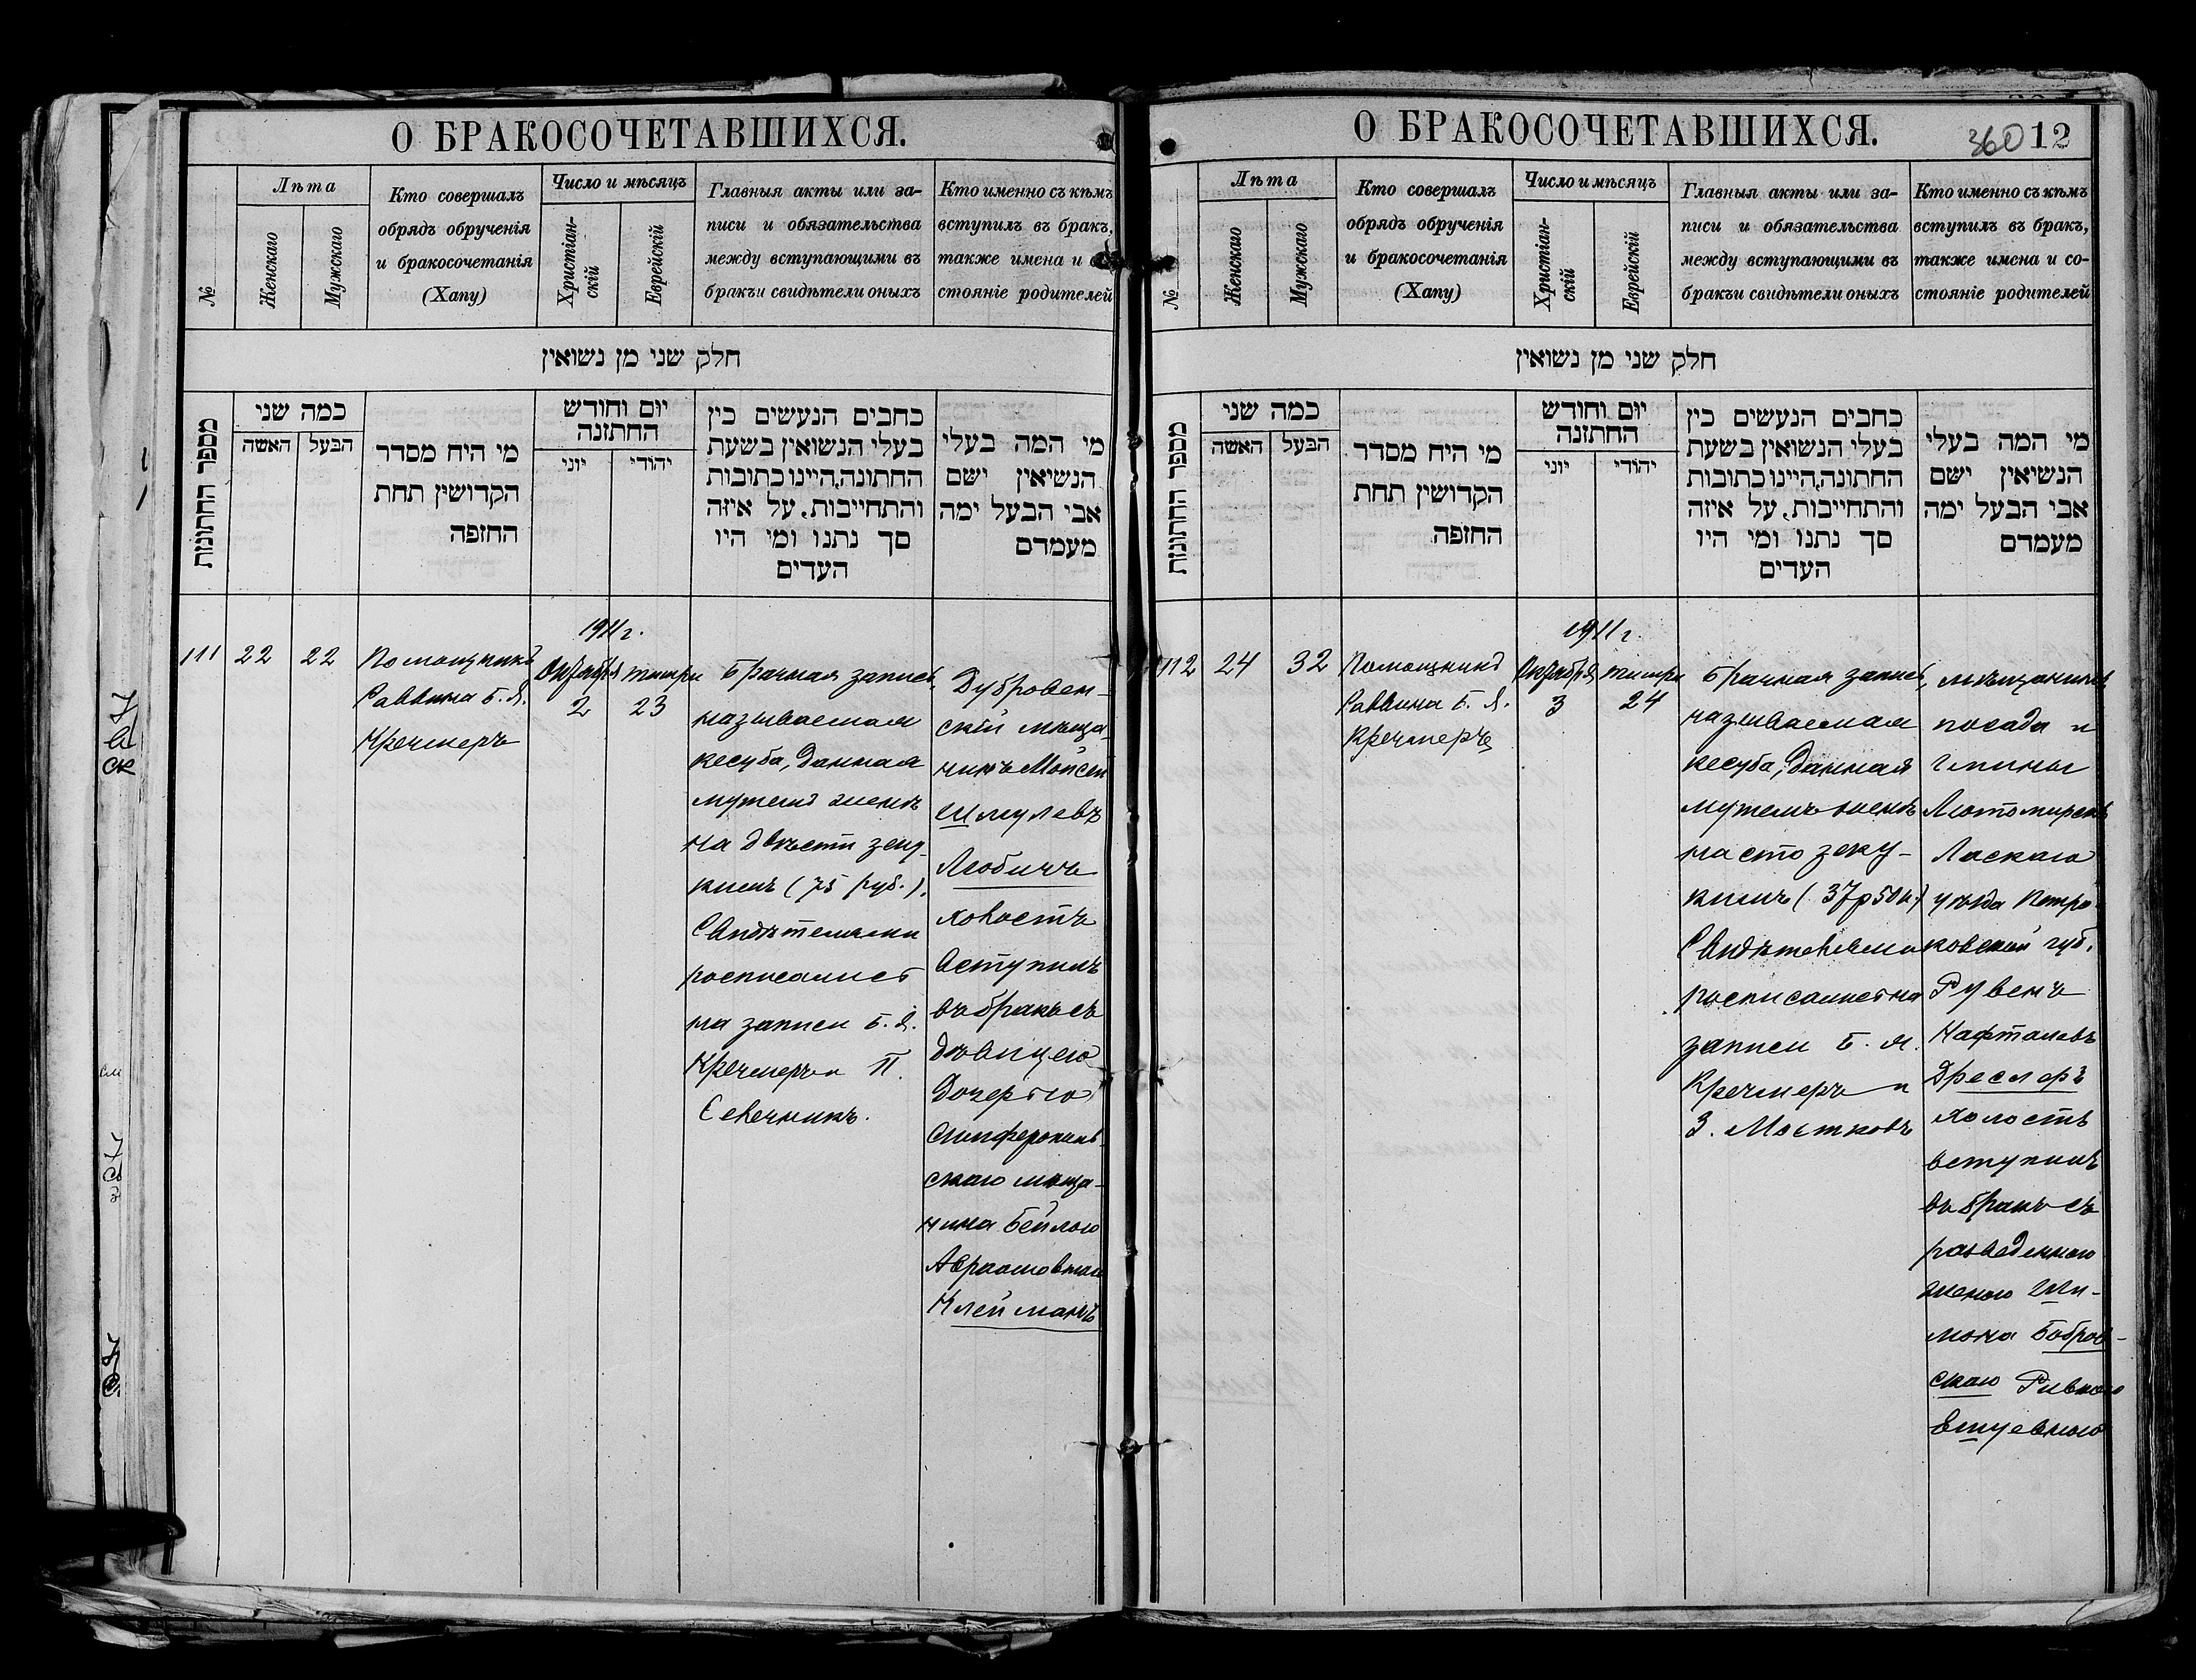 О БРАКОСОЧЕТАВШИХСЯ.
№
Лѣта
Женскаго
Мужскаго
Кто совершалъ
обрядъ обрученія
и бракосочетанія
(Хапу)
Число и мѣсяцъ
Христіан-
скій
Еврейскій
Главныя акты или за-
писи и обязательства
между вступающими въ
бракъ и свидѣтели оныхъ
Кто именно съ кѣмъ
вступилъ въ бракъ,
также имена и
стояніе родителей
חלק שני מן נשואין
מספר החתונות
כמה שני
האשה
הבעל
מי היח מסדר
הקדושין תחת
החופה
יום וחודש
החתונה
יוני
יהודי
כחבים הנעשים כין
בעלי הנשואין בשעת
החתונה, היינו כתובות
והתחייבות, על איזה
סך נתנו ומי היו
העדים
מי המה בעלי
הנשיאין ישם
אבי הבעל ימה
מעמדם
111
22
22
Помощникъ
Раввина Б. Я.
Кречмеръ
1911 г.
Октября
2
тишри
23
Брачная запись,
называемая
кесуба, данная
мужемъ женѣ
на двѣсти зеку-
кимъ (75 руб.).
Свидѣтелями
росписались
на записи Б. Я.
Кречмеръ и П.
Сѣвечникъ.
Дубровен-
скій мѣща-
нинъ Мойсей
Шмулевъ
Любичъ
холостъ
вступилъ
въ бракъ съ
дѣвицею
дочерью
Симферополь-
скаго мѣща-
нина Бейлою
Авраамовною
Клейманъ
О БРАКОСОЧЕТАВШИХСЯ.
360 12
№
Лѣта
Женскаго
Мужскаго
Кто совершалъ
обрядъ обрученія
и бракосочетанія
(Хапу)
Число и мѣсяцъ
Христіан-
скій
Еврейскій
Главныя акты или за-
писи и обязательства
между вступающими въ
бракъ и свидѣтели оныхъ
Кто именно съ кѣмъ
вступилъ въ бракъ,
также имена и со-
стояніе родителей
חלק שני מן נשואין
מספר החתונות
כמה שני
האשה
הבעל
מי היח מסדר
הקדושין תחת
החופה
יום וחודש
החתונה
יוני
יהודי
כחבים הנעשים כין
בעלי הנשואין בשעת
החתונה, היינו כתובות
והתחייבות, על איזה
סך נתנו ומי היו
העדים
מי המה בעלי
הנשיאין ישם
אבי הבעל ימה
מעמדם
112
24
32
Помощникъ
Раввина Б. Я.
Кречмеръ
1911 г.
Октября
3
тишри
24
Брачная запись,
называемая
кесуба, данная
мужемъ женѣ
на сто зеку-
кимъ (37 р 50 к.)
Свидѣтелями
росписались на
записи Б. Я.
Кречмеръ и
З. Мостковъ
мѣщанинъ
посада и
гмины
Лютомирскъ
Ласкаго
уѣзда Петро-
ковской губ.
Рувенъ
Нафталевъ
Дреслеръ
холостъ
вступилъ
въ бракъ съ
разведенною
женою Ши-
мона Бобров-
скаго Ривкою